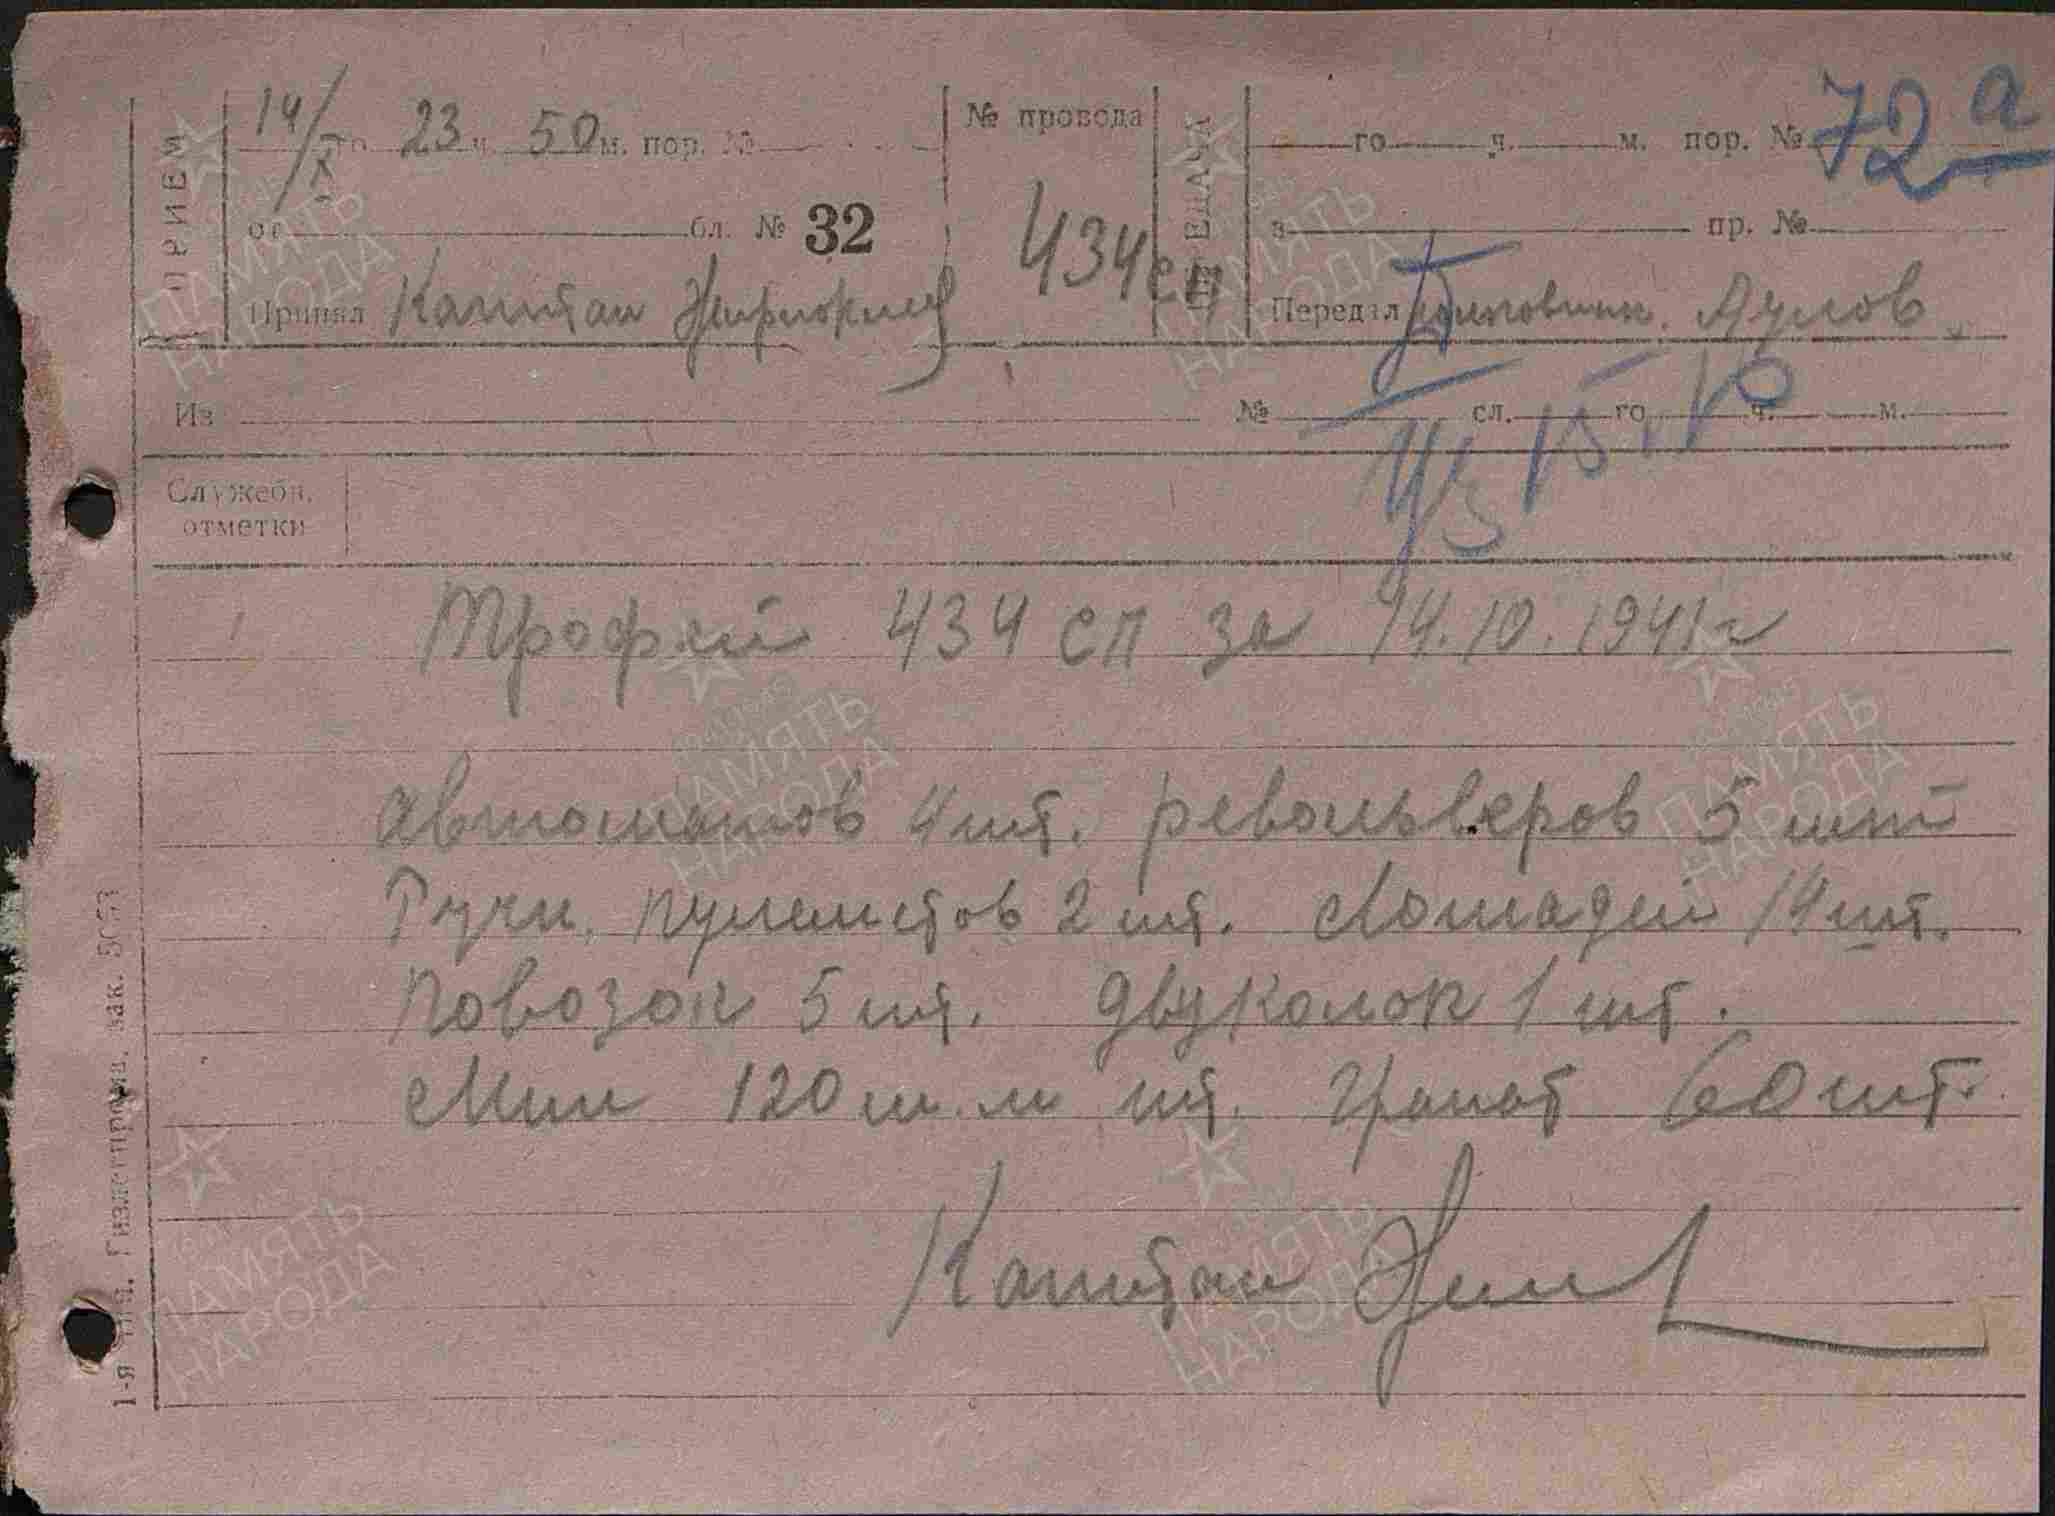 ПРИЕМ
14/X го 23 ч. 50 м. пор. №
от бл. № 32
Принял Капитан
№ провода
434 сп
ПЕРЕДАЧА
го ч. м. пор. № 72а
в пр. №
Передал полковник. Аулов
Из № сл. го ч. м.
15.10
Служебн.
отметки
Трофей 434 сп за 14.10.1941г
Автоматов 4 шт. револьверов 5 шт
Ручн. пулеметов 2 шт. Лошадей 14 шт.
Повозок 5 шт. двуколок 1 шт.
Мин 120 м.м шт. Гранат 60 шт.
Капитан
1-я тип. Гизлегпрома, зак.
ПАМЯТЬ
НАРОДА
ПАМЯТЬ
НАРОДА
ПАМЯТЬ
НАРОДА
ПАМЯТЬ
НАРОДА
ПАМЯТЬ
НАРОДА
ПАМЯТЬ
НАРОДА